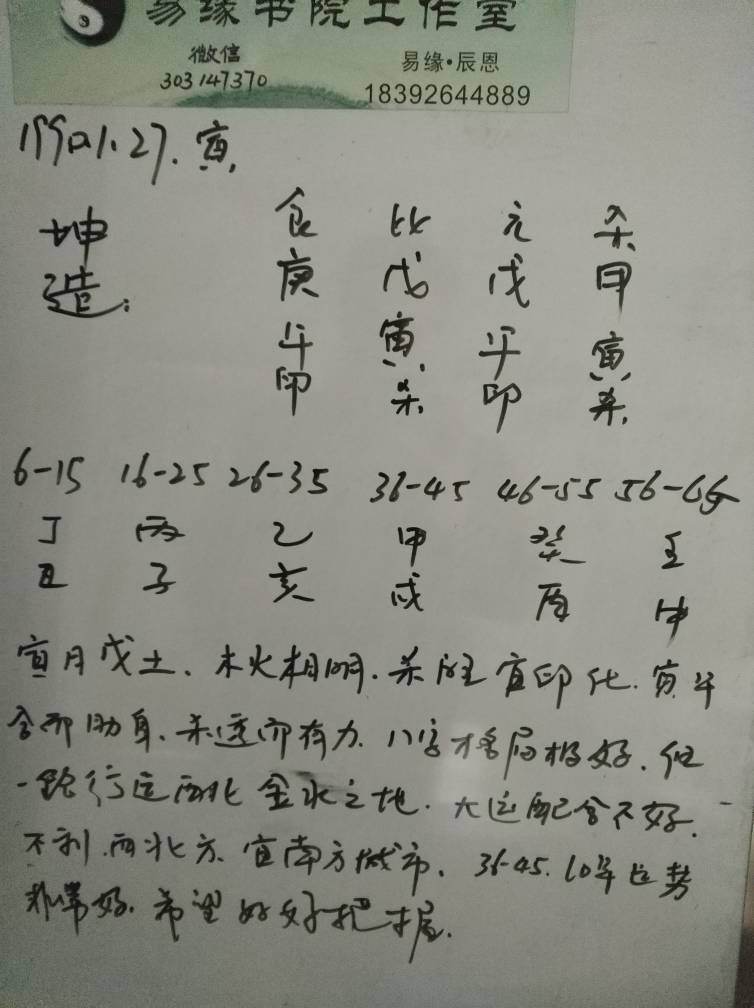 易缘书院工作室
微信
303147370
易缘·辰恩
18392644889
1990.1.27.寅.
坤造:
食 比 元 杀
庚 戊 戊 甲
午 寅 午 寅
印 杀. 印 杀.
6-15 16-25 26-35 36-45 46-55 56-65
丁 丙 乙 甲 癸 壬
丑 子 亥 戌 酉 申
寅月戊土、木火相明.杀旺宜印化.寅午
合而助身、杀透而有力.八字格局极好、但
一路行运西北金水之地.大运配合不好.
不利.西北方.宜南方城市、36-45.10年运势
非常好.希望好好把握.